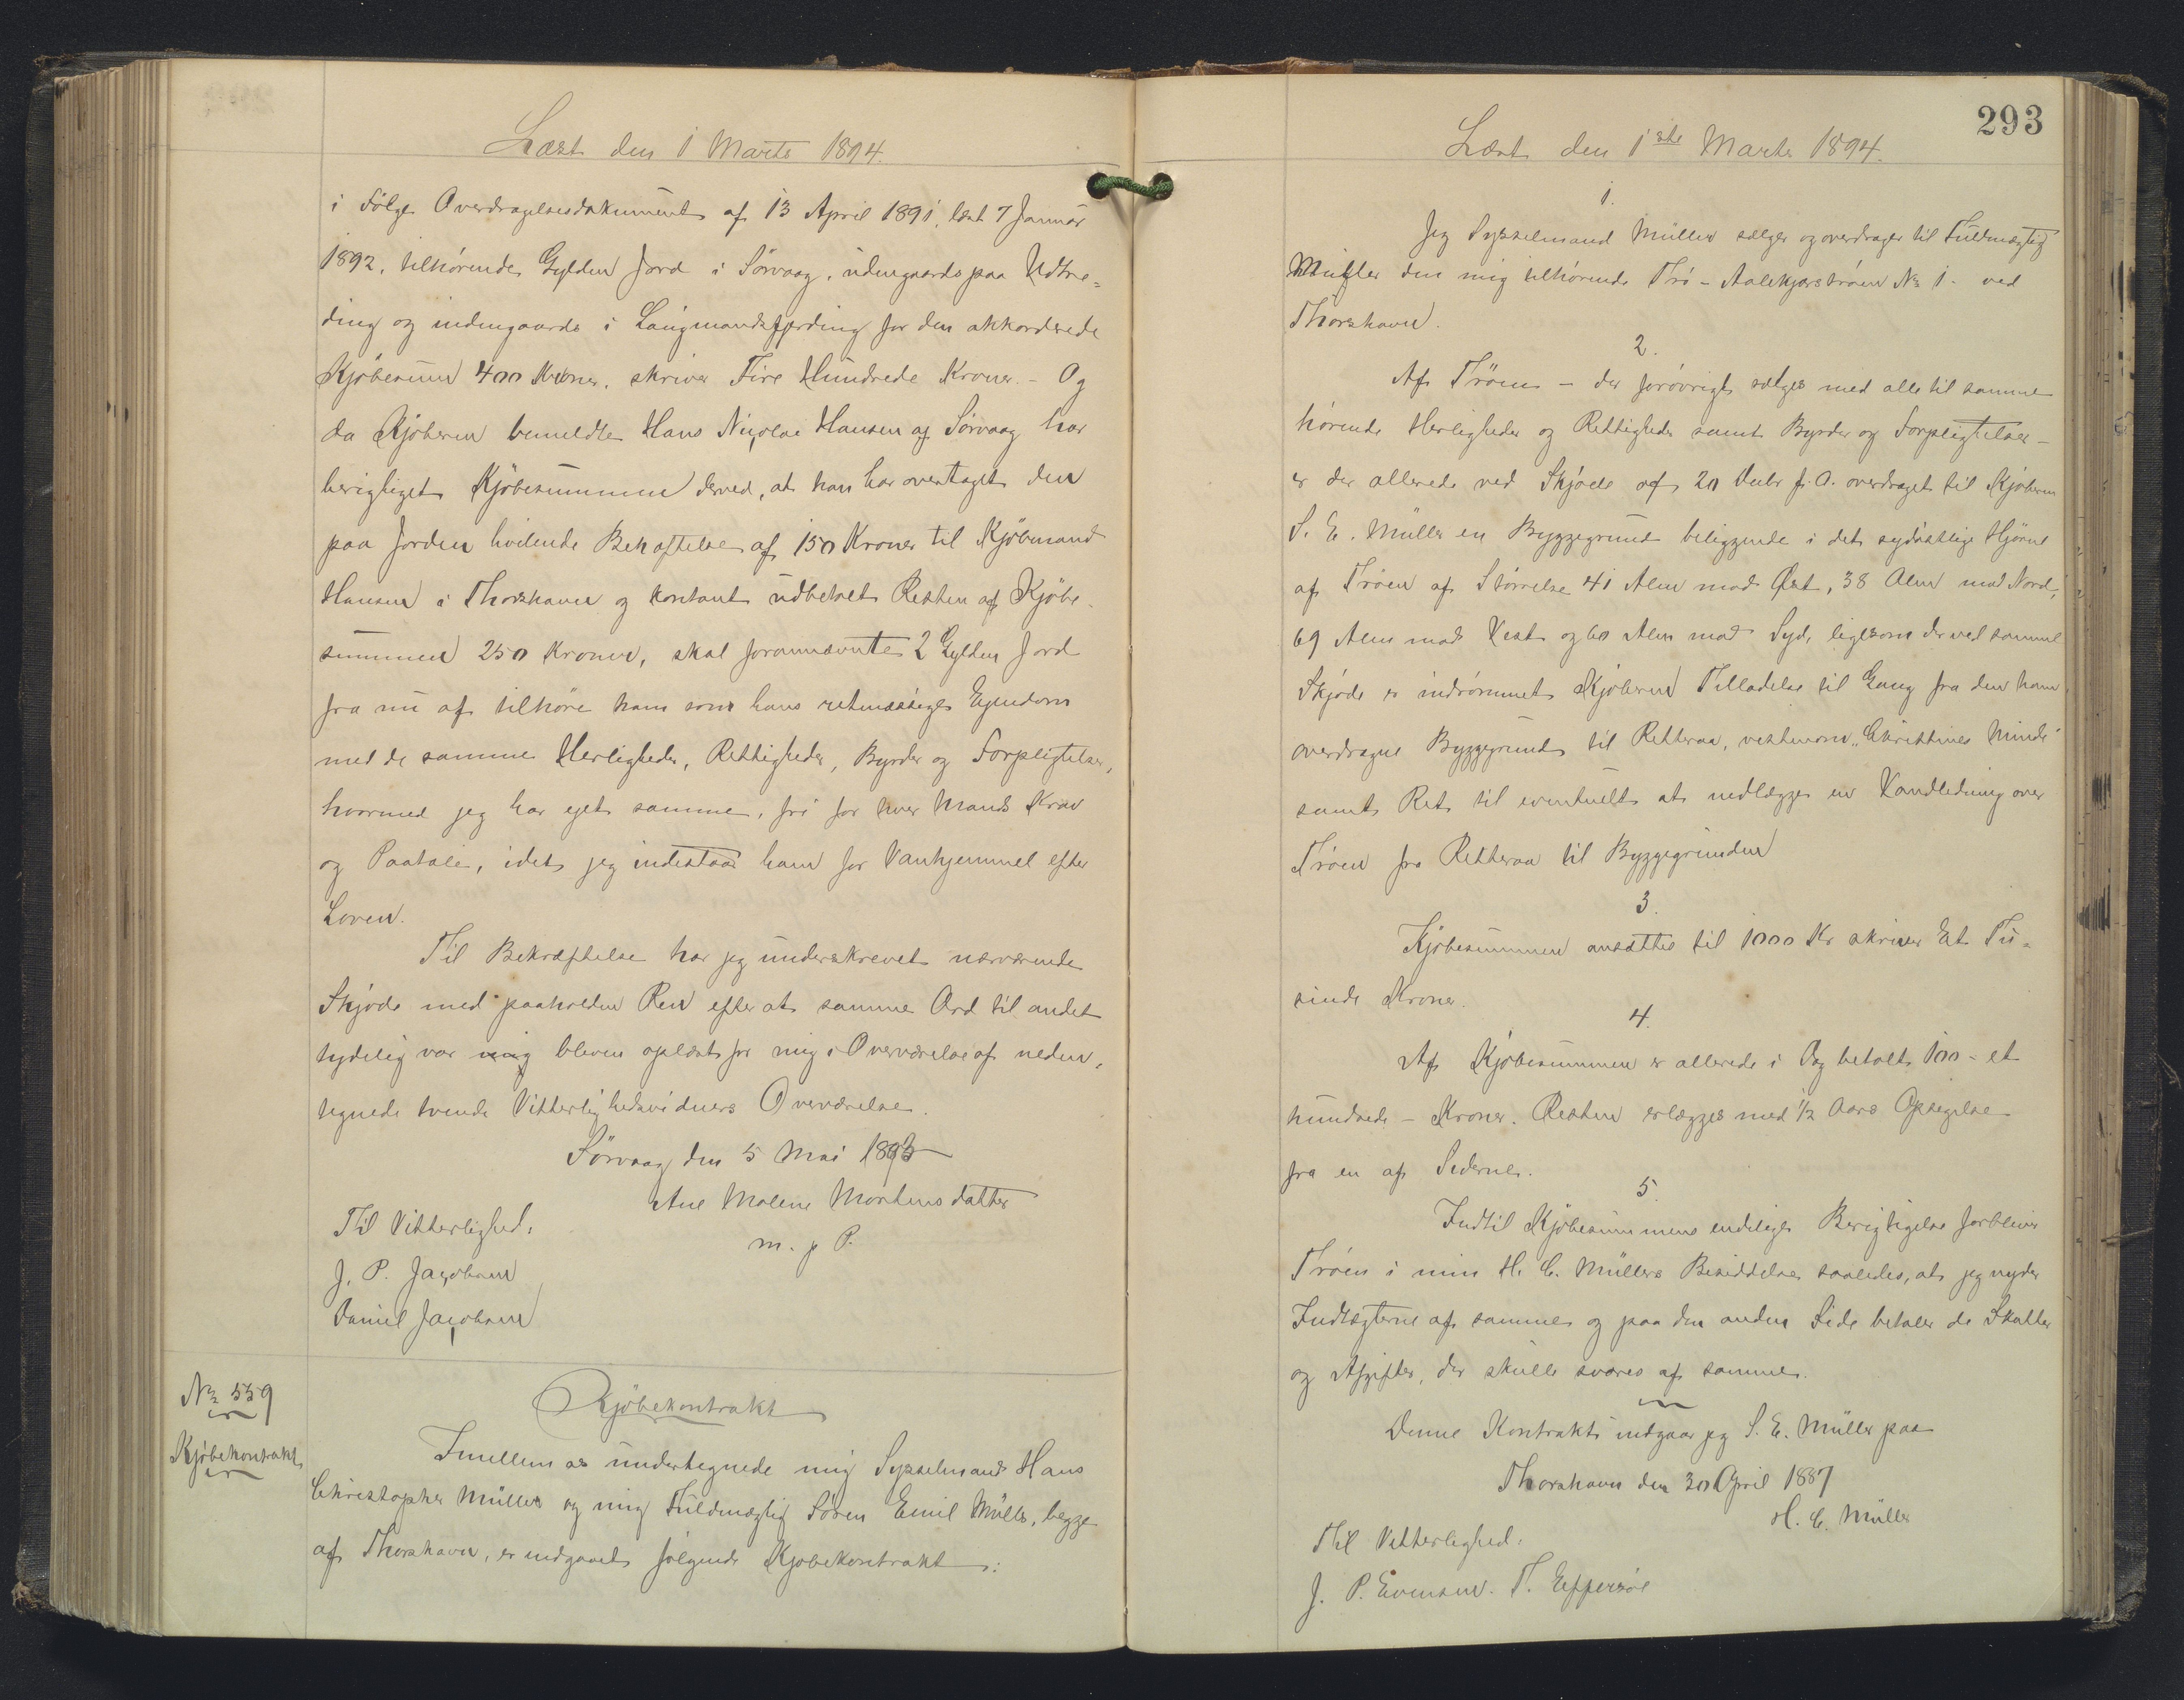 Læst den 1 Marts 1894.
i Følge Overdragelsesdokument af 13 April 1891, læst 7 Januar
1892, tilhørende Gylden Jord i Sörvaag, udengaards paa Udtræ-
ding og indengaards i Laugmandsfjerding for den akkorderede
Kjöbesum 400 Kroner, skriver Fire Hundrede Kroner. - Og
da Kjöberen bemeldte Hans Nicolai Hansen af Sörvaag har
berigtiget Kjöbesummen derved, at han har overtaget den
paa Jorden hvilende Behæftelse af 150 Kroner til Kjöbmand
Hansen i Thorshavn og kontant udbetalt Resten af Kjöbe-
summen 250 Kroner, skal forannævnte 2 Gylden Jord
fra nu af tilhöre ham som hans retmæssige Ejendom
med de samme Herligheder, Rettigheder, Byrder og Forpligtelser,
hvormed jeg har ejet samme, fri for hver Mands Krav
og Paatale, idet jeg indestaar ham for Vanhjemmel efter
Loven.
Til Bekræftelse har jeg underskrevet nærværende
Skjöde med paaholden Pen efter at samme Ord til andet
tydelig var mig bleven oplæst for mig i Overværelse af neden-
tegnede tvende Vitterlighedsvidners Overværelse.
Sörvaag den 5 Mai 1893
Ane Malene Mortensdatter
m. p P.
Til Vitterlighed:
J. P. Jacobsen
Daniel Jacobsen
No 559
Kjöbekontrakt
Kjöbekontrakt
Imellem os undertegnede mig Sysselmand Hans
Christopher Müller og mig Fuldmægtig Sören Emil Müller, begge
af Thorshavn, er indgaaet fölgende Kjöbekontrakt:
293
Læst den 1ste Marts 1894.
1.
Jeg Sysselmand Müller sælger og overdrager til Fuldmægtig
Müller den mig tilhörende Trö - Aalekjærströen No 1. ved
Thorshavn.
2.
Af Tröen - der forövrigt sælges med alle til samme
hörende Herligheder og Rettigheder samt Byrder og Forpligtelser -
er der allerede ved Skjöde af 20 Decbr f. A. overdraget til Kjöberen
S. E. Müller en Byggegrund beliggende i det sydöstlige Hjörne
af Tröen af Störrelse 41 Alen mod Öst, 38 Alen mod Nord,
69 Alen mod Vest og 60 Alen mod Syd, ligesom der ved samme
Skjöde er indrömmet Kjöberen Tilladelse til Gang fra den ham
overdragne Byggegrund til Retteraa, vestenom "Christines Minde"
samt Ret til eventuelt at nedlægge en Vandledning over
Tröen fra Retteraa til Byggegrunden
3.
Kjöbesummen ansættes til 1000 Kr skriver Et Tu-
sinde Kroner.
4.
Af Kjöbesummen er allerede i Dag betalt 100 - et
hundrede - Kroner. Resten erlægges med 1/2 Aars Opsigelse
fra en af Siderne.
5.
Indtil Kjöbesummens endelige Berigtigelse forbliver
Tröen i min H. C. Müllers Besiddelse saaledes, at jeg nyder
Indtægterne af samme og paa den anden Side betaler de Skatter
og Afgifter, der skulle svares af samme.
Denne Kontrakt indgaar jeg S. E. Müller paa
Thorshavn den 30 April 1887
H. C. Müller
Til Vitterlighed:
J. P. Evensen. T. Effersöe